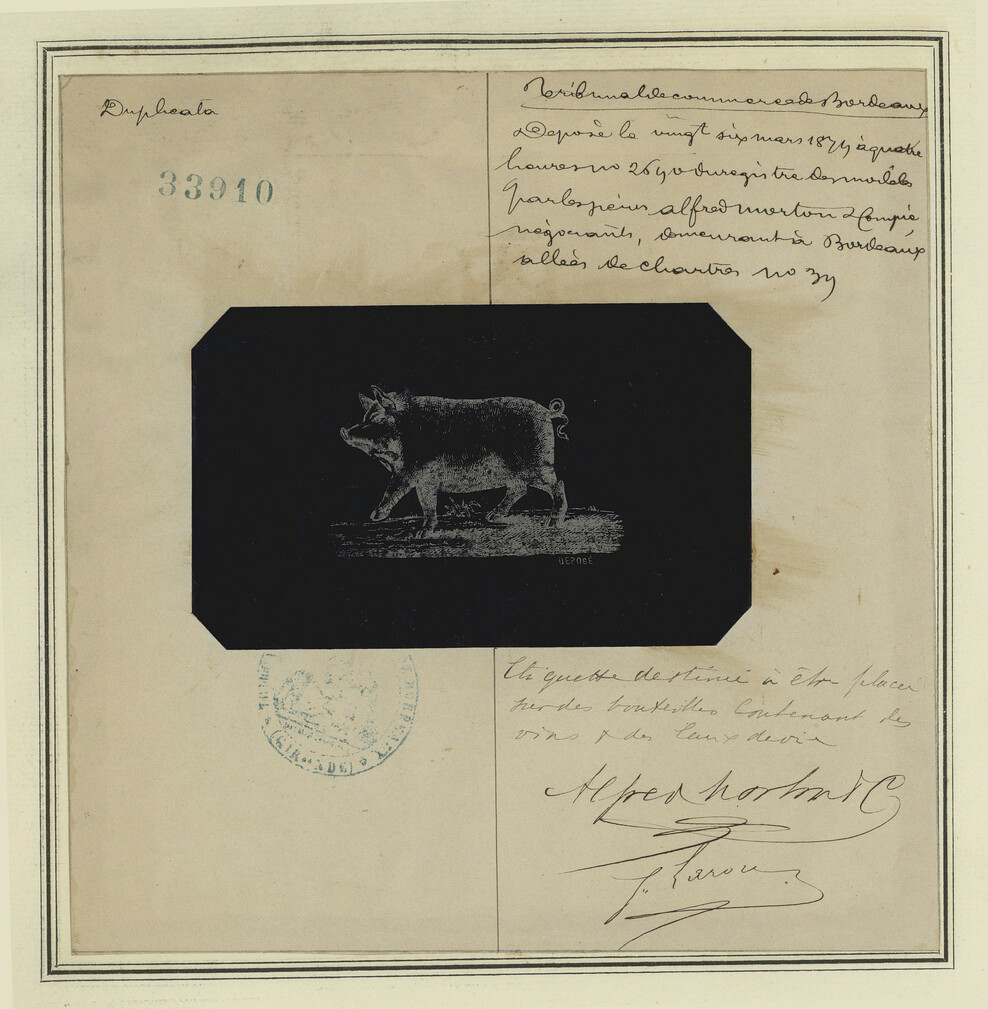 Duplicata
33910
Tribunal de commerce de Bordeaux
Déposé le vingt six mars 1879 à quatre
heures no 2690 du registre des modèles
par les sieurs alfred morton & Compie
négociants, demeurant à Bordeaux
allées de chartres no 39
DÉPOSÉ
(GIRONDE)
Etiquette destinée à être placée
sur des bouteilles contenant des
vins & des Eaux de vie
Alfred Morton & C